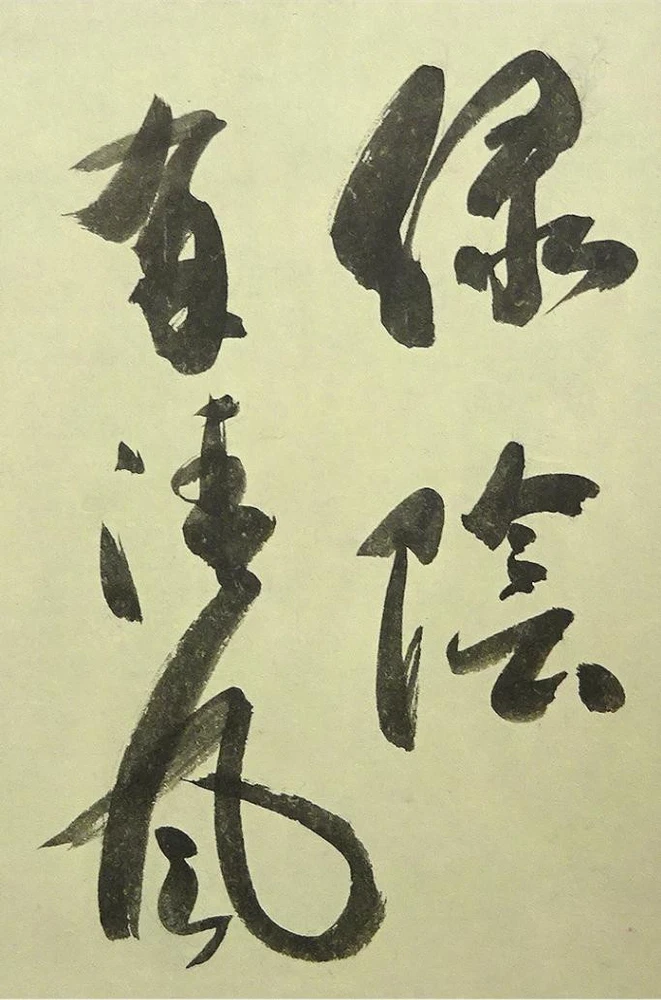 緑陰
有清風